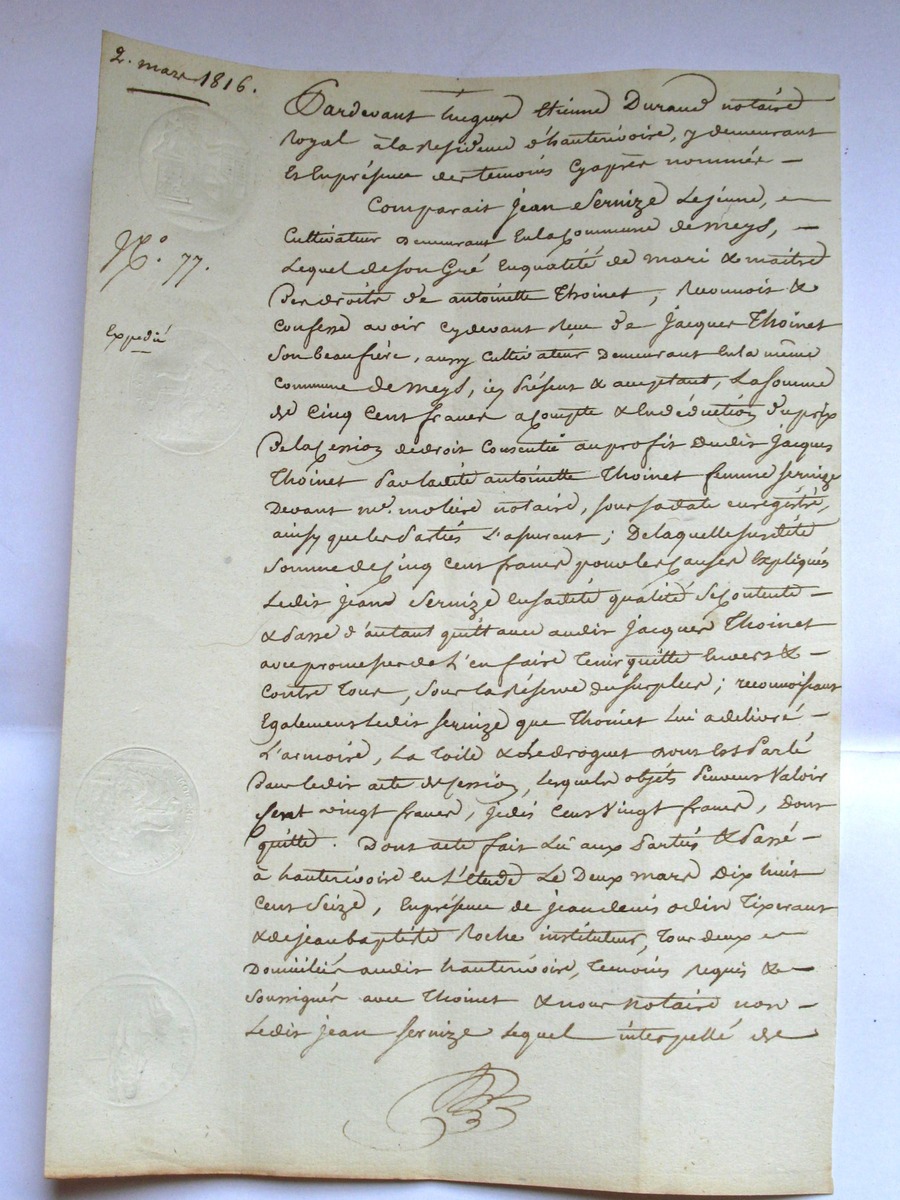 2. mars 1816.
Pardevant hugue Etienne Durand notaire
Royal à la Residence d'hauterivoire, y demeurant
Et En présence des temoins Cyaprès nommés —
Comparait jean Sernize Lejeune,
Cultivateur demeurant En la Commune de meys, —
N.o 77.
Lequel de son Gré En qualité de mari & maître
Des droits de antoinette Thoinet, Reconnois &
Expedié
Confesse avoir cydevant Reçu de Jacques Thoinet
son beaufrère, aussy Cultivateur demeurant En la même
Commune de meys, icy présent & acceptant, La somme
de Cinq Cent francs acompte & En déduction du prix
De la Cession de droit Consentie au profit dudit Jacques
Thoinet par ladite antoinette Thoinet femme Sernize
Devant me. moliere notaire, sous sa date enregistré,
ainsy que les parties L'assurent ; De laquelle susdite
somme de Cinq Cent francs pour les Causes Expliqués
Ledit jean Sernize en sadite qualité se Contente —
& passe d'autant quittance audit Jacques Thoinet
avec promesse de L'en faire Tenir quitte Envers & —
Contre Tous, sous la Réserve du surplus ; reconnoissant
Egalement Ledit sernize que Thoinet Lui a delivré —
L'armoire, La Toile & Le droguet dont Est parlé
Par ledit acte de Cession, Lesquels objets peuvent Valoir
Cent vingt francs, je dis Cent Vingt francs, dont
quitte. Dont acte fait Lu aux parties & passé —
à hauterivoire En L'étude Le Deux mars Dix huit
Cent Seize, En présence de jean denis odin Tixerant
& de jean baptiste Roche instituteur, Tous deux
Domiciliés audit hauterivoire, Temoins Requis &
Soussignés avec Thoinet & nous notaire non —
Ledit jean sernize Lequel interpellé de